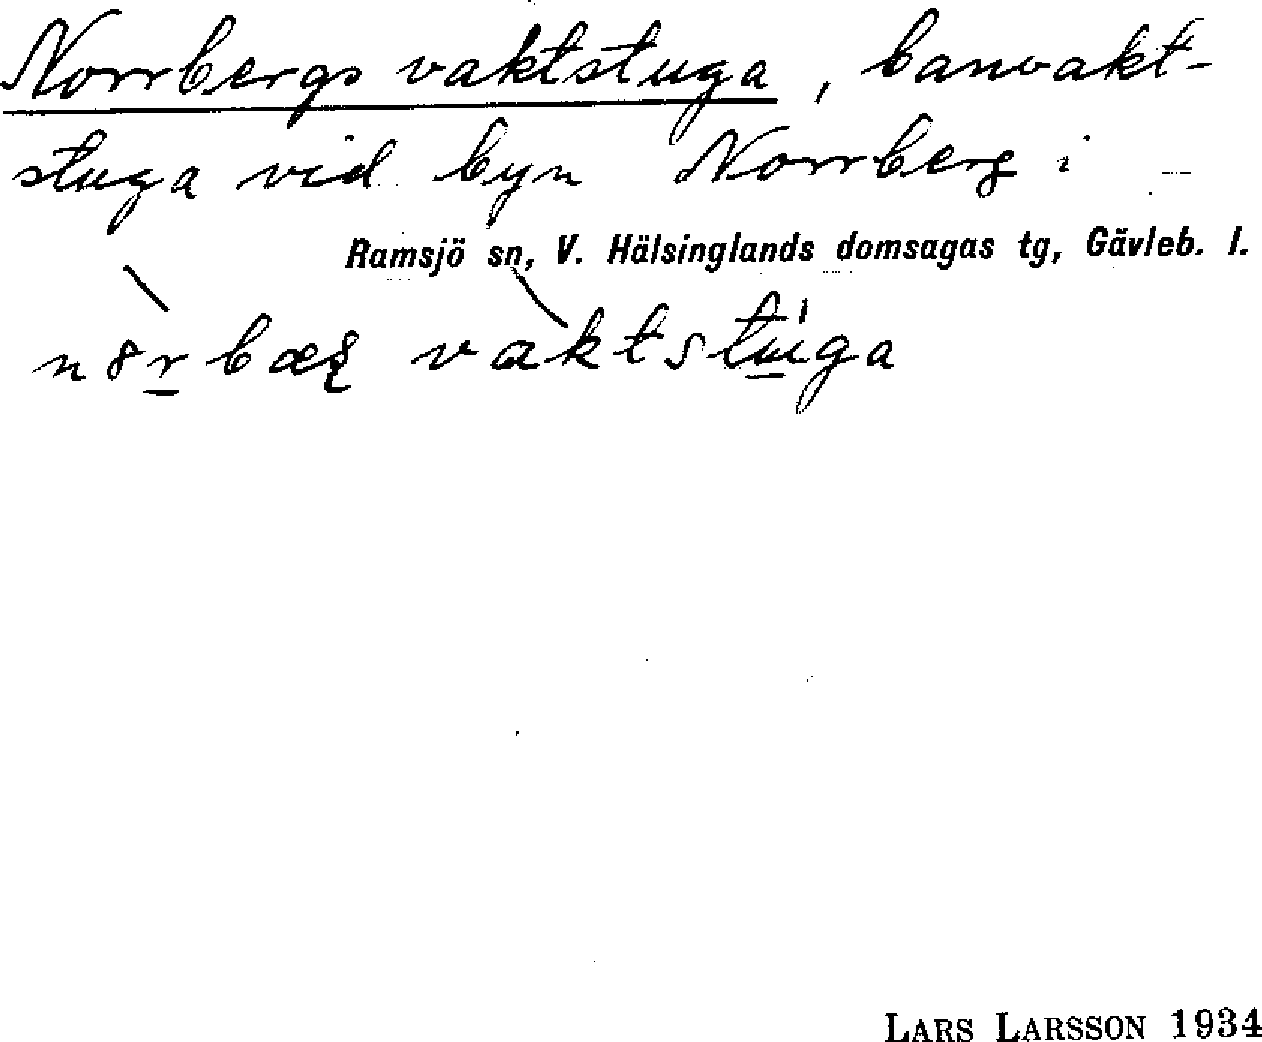 Norrbergs vaktstuga, banvakt-
stuga vid byn Norrberg i
Ramsjö sn, V. Hälsinglands domsagas tg, Gävleb. l.
vaktstuga
LARS LARSSON 1934